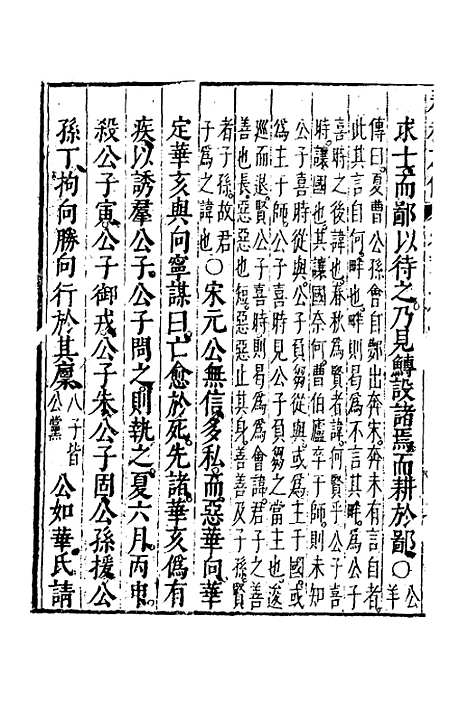 求士而鄙以待之乃見鱄設諸焉而耕於鄙〇公羊
傳曰夏曹公孫會自鄸出奔宋奔未有言自者
此其言自何畔也畔則曷為不言其畔為公子
喜時之後諱也春秋為賢者諱何賢乎公子喜
時讓國也其讓國奈何曹伯廬卒于師則未知
公子喜時從與公子負芻從與或為主于國或
為主于師公子喜時見公子負芻之當主也逡
巡而退賢公子喜時則曷為為會諱君子之善
善也長惡惡也短惡惡止其身善善及子孫賢
者子孫故君
子為之諱也
〇宋元公無信多私而惡華向華
定華亥與向寧謀曰亡愈於死先諸華亥偽有
疾以誘羣公子公子問之則執之夏六月丙申
殺公子寅公子御戎公子朱公子固公孫援公
孫丁拘向勝向行於其廩八子皆公黨公如華氏請